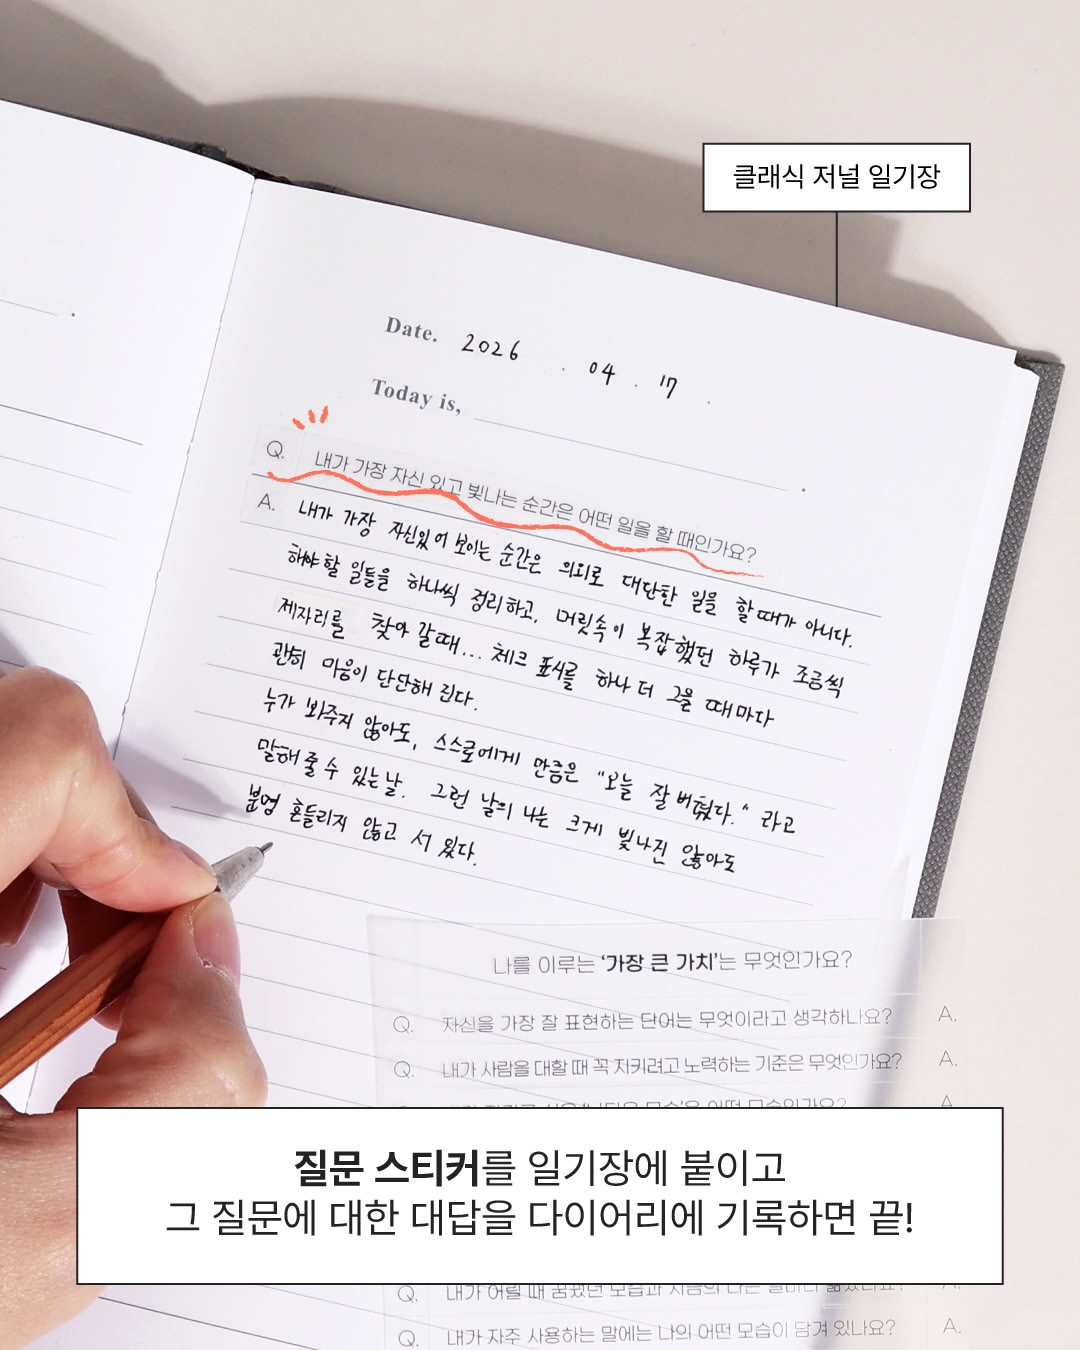 클래식 저널 일기장
Date. 2026 . 04 . 17 .
Today is, .
Q. 내가 가장 자신 있고 빛나는 순간은 어떤 일을 할 때인가요?
A. 내가 가장 자신있어 보이는 순간은 의외로 대단한 일을 할때가 아니다.
해야할 일들을 하나씩 정리하고, 머릿속이 복잡했던 하루가 조금씩
제자리를 찾아 갈때... 체크 표시를 하나 더 그을 때마다
괜히 마음이 단단해 진다.
누가 봐주지 않아도, 스스로에게 만큼은 "오늘 잘 버텼다." 라고
말해 줄 수 있는 날. 그런 날의 나는 크게 빛나진 않아도
분명 흔들리지 않고 서 있다.
나를 이루는 '가장 큰 가치'는 무엇인가요?
Q. 자신을 가장 잘 표현하는 단어는 무엇이라고 생각하나요? A.
Q. 내가 사람을 대할 때 꼭 지키려고 노력하는 기준은 무엇인가요? A.
질문 스티커를 일기장에 붙이고
그 질문에 대한 대답을 다이어리에 기록하면 끝!
Q. 내가 어릴 때 꿈꿨던 모습과 지금의 나는
Q. 내가 자주 사용하는 말에는 나의 어떤 모습이 담겨 있나요? A.